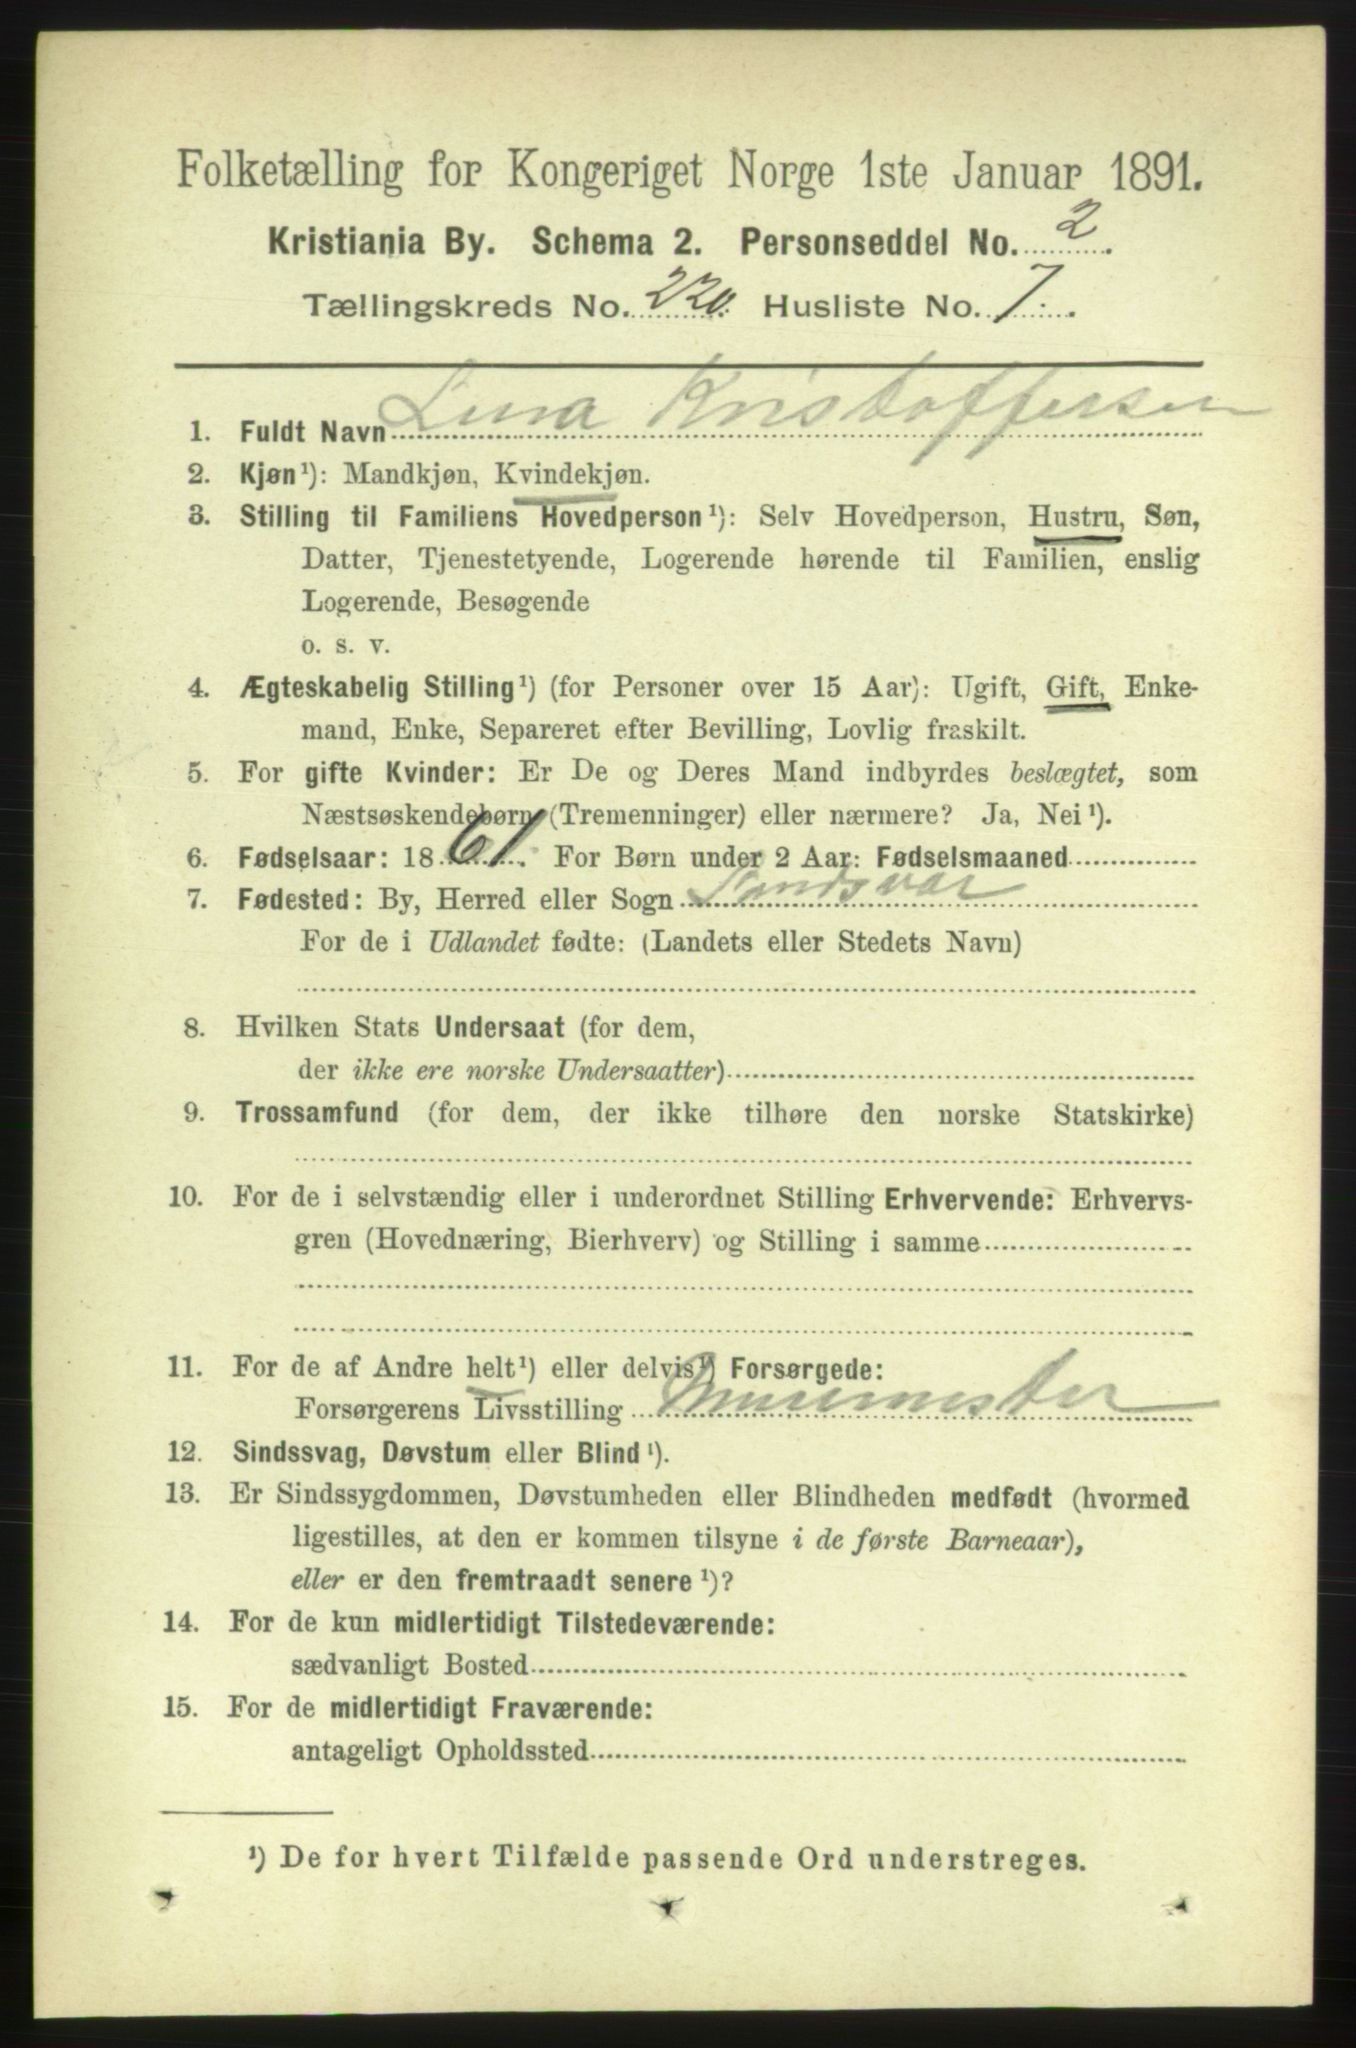 Folketælling for Kongeriget Norge 1ste Januar 1891.
Kristiania By. Schema 2. Personseddel No. 2.
Tællingskreds No. 220. Husliste No. 7.
1. Fuldt Navn Lina Kristoffersen
2. Kjøn¹): Mandkjøn, Kvindekjøn.
3. Stilling til Familiens Hovedperson¹): Selv Hovedperson, Hustru, Søn,
Datter, Tjenestetyende, Logerende hørende til Familien, enslig
Logerende, Besøgende
o. s. v.
4. Ægteskabelig Stilling¹) (for Personer over 15 Aar): Ugift, Gift, Enke-
mand, Enke, Separeret efter Bevilling, Lovlig fraskilt.
5. For gifte Kvinder: Er De og Deres Mand indbyrdes beslægtet, som
Næstsøskendebørn (Tremenninger) eller nærmere? Ja, Nei¹).
6. Fødselsaar: 1861. For Børn under 2 Aar: Fødselsmaaned
7. Fødested: By, Herred eller Sogn Sandsvær
For de i Udlandet fødte: (Landets eller Stedets Navn)
8. Hvilken Stats Undersaat (for dem,
der ikke ere norske Undersaatter)
9. Trossamfund (for dem, der ikke tilhøre den norske Statskirke)
10. For de i selvstændig eller i underordnet Stilling Erhvervende: Erhvervs-
gren (Hovednæring, Bierhverv) og Stilling i samme
11. For de af Andre helt¹) eller delvis¹) Forsørgede:
Forsørgerens Livsstilling Murermester
12. Sindssvag, Døvstum eller Blind¹).
13. Er Sindssygdommen, Døvstumheden eller Blindheden medfødt (hvormed
ligestilles, at den er kommen tilsyne i de første Barneaar),
eller er den fremtraadt senere¹)?
14. For de kun midlertidigt Tilstedeværende:
sædvanligt Bosted
15. For de midlertidigt Fraværende:
antageligt Opholdssted
¹) De for hvert Tilfælde passende Ord understreges.